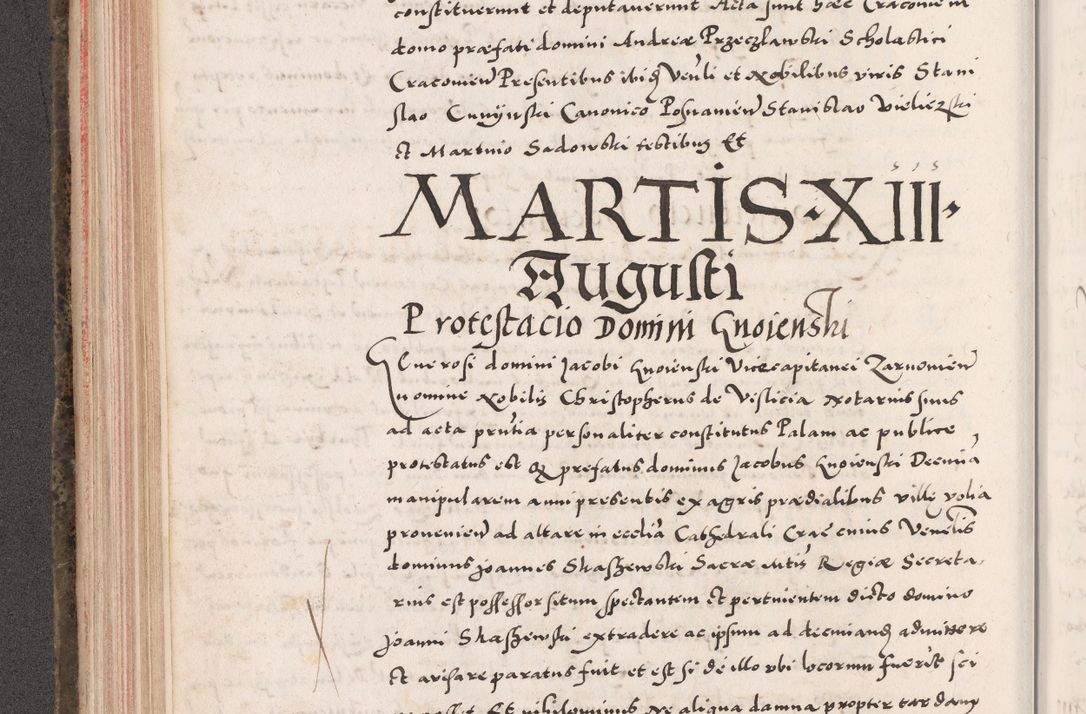 constituerunt et deputauerunt Acta sunt haec Cracoviae in
domo præfati domini Andreæ Przeczlawski Scholastici
Cracovien Presentibus ibidem Ven'li et Nobilibus viris Stani
slao Canonico Posnanien Stanislao Vieliczski
et Martino Sadowski testibus Et
MARTIS·XIII·
Augusti
Protestacio Domini Gnoienski
Generosi domini Jacobi Gnoienski Vicecapitanei Zarnovien
nomine Nobilis Christopherus de Vislicia Notarius suus
ad acta prntia personaliter constitutus Palam ac publice
protestatus est Q prefatus dominus Jacobus Gnoienski Decima
manipularem anni presentis ex agris prædialibus villę volia
provenien ad altare in ecclia Cathedrali Crac cuius Venelis
dominus Joannes Skaszewski Sacræ Mtis Regiæ Secreta-
rius est possessor situm spectantem et pertinentem dicto domino
Joanni Skaszewski extradere ac ipsum ad decimand admittere
et avisare paratus fuit et est si de illo vbi locorum fuerit sci
Et nihilominus Ne aliqua damna propter tardam